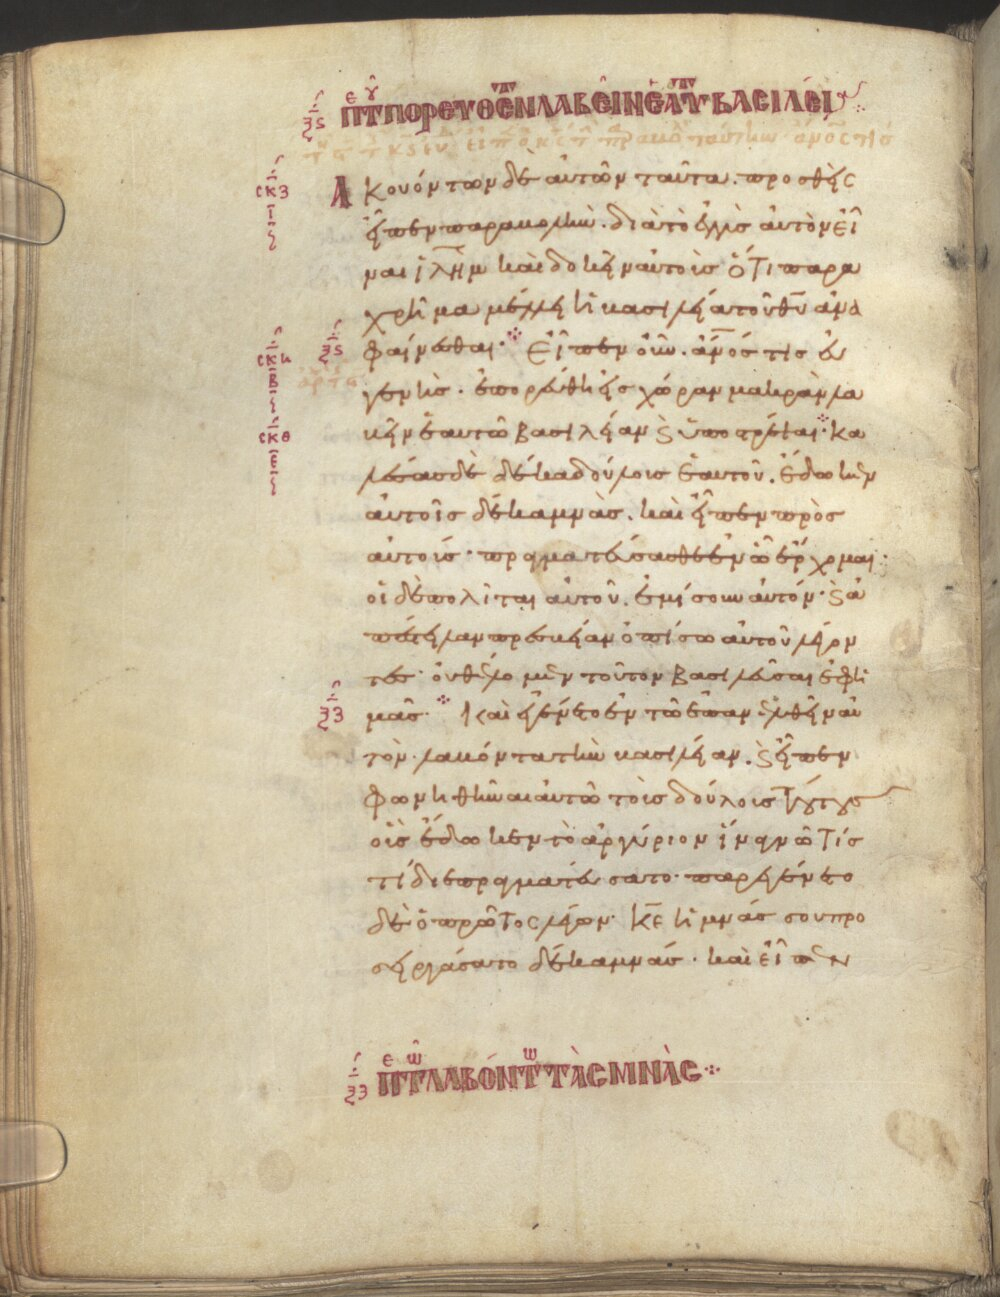 ξϛ περὶ τοῦ πορευθέντος λαβεῖν ἑαυτῷ βασιλεί
Ἀκουόντων δὲ αὐτῶν ταῦτα. προσθεὶς
εἶπεν παραβολήν. διὰ τὸ ἐγγὺς αὐτὸν εἶ
ναι ἰλῆμ καὶ δοκεῖν αὐτοῖς ὅτι παρα
χρῆμα μέλλει ἡ βασιλεία τοῦ θυ ἀνα
φαίνεσθαι· Εἶπεν οὖν. ἄνος τις εὐ
γενὴς. ἐπορεύθη εἰς χώραν μακρὰν λα
βεῖν ἑαυτῶ βασιλείαν ϗ ὑποστρέψαι· κα
λέσας δὲ δέκα δούλους ἑαυτοῦ. ἔδωκεν
αὐτοῖς δέκα μνᾶς. καὶ εἶπεν πρὸς
αὐτούς· πραγματεύσασθε ἐν ὧ ἔρχομαι·
οἱ δὲ πολῖται αὐτοῦ. ἐμίσουν αὐτόν· ϗ ἀ
πέστειλαν πρεσβείαν ὀπίσω αὐτοῦ λέγον
τες· οὐ θέλομεν τοῦτον βασιλεῦσαι ἐφ' ἡ
μᾶς· Καὶ ἐγένετο ἐν τῶ ἐπανελθεῖν αὐ
τὸν. λαβόντα τὴν βασιλείαν. ϗ εἶπεν
φωνηθῆναι αὐτῶ τοὺς δούλους τούτους
οἷς ἔδωκεν τὸ ἀργύριον ἵνα γνῶ τίς
τί διεπραγματεύσατο· παρεγένετο
δὲ ὁ πρῶτος λέγων· κε ἡ μνᾶς σου προ
σειργάσατο δέκα μνᾶς. καὶ εἶπεν
σκζ
ι
σκη
β
σκθ
ε
ξϛ
ξζ
ξζ περὶ τῶν λαβόντων τὰς μνὰς